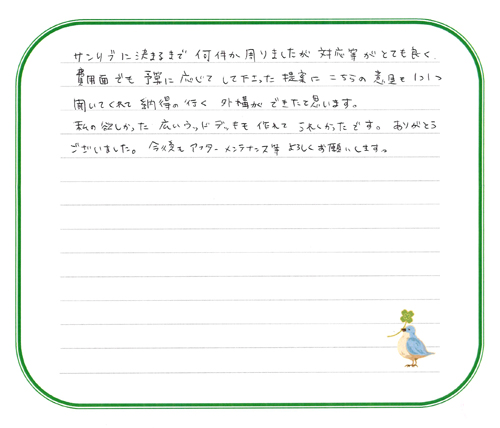 サンリブに決まるまで 何件か周りましたが 対応等がとても良く、
費用面でも 予算に応じて して下さった 提案に こちらの意見も 1つ1つ
聞いてくれて 納得の行く 外構ができたと思います。
私の欲しかった 広いウッドデッキも 作れて うれしかったです。 ありがとう
ございました。 今後も アフターメンテナンス等 よろしくお願いします。